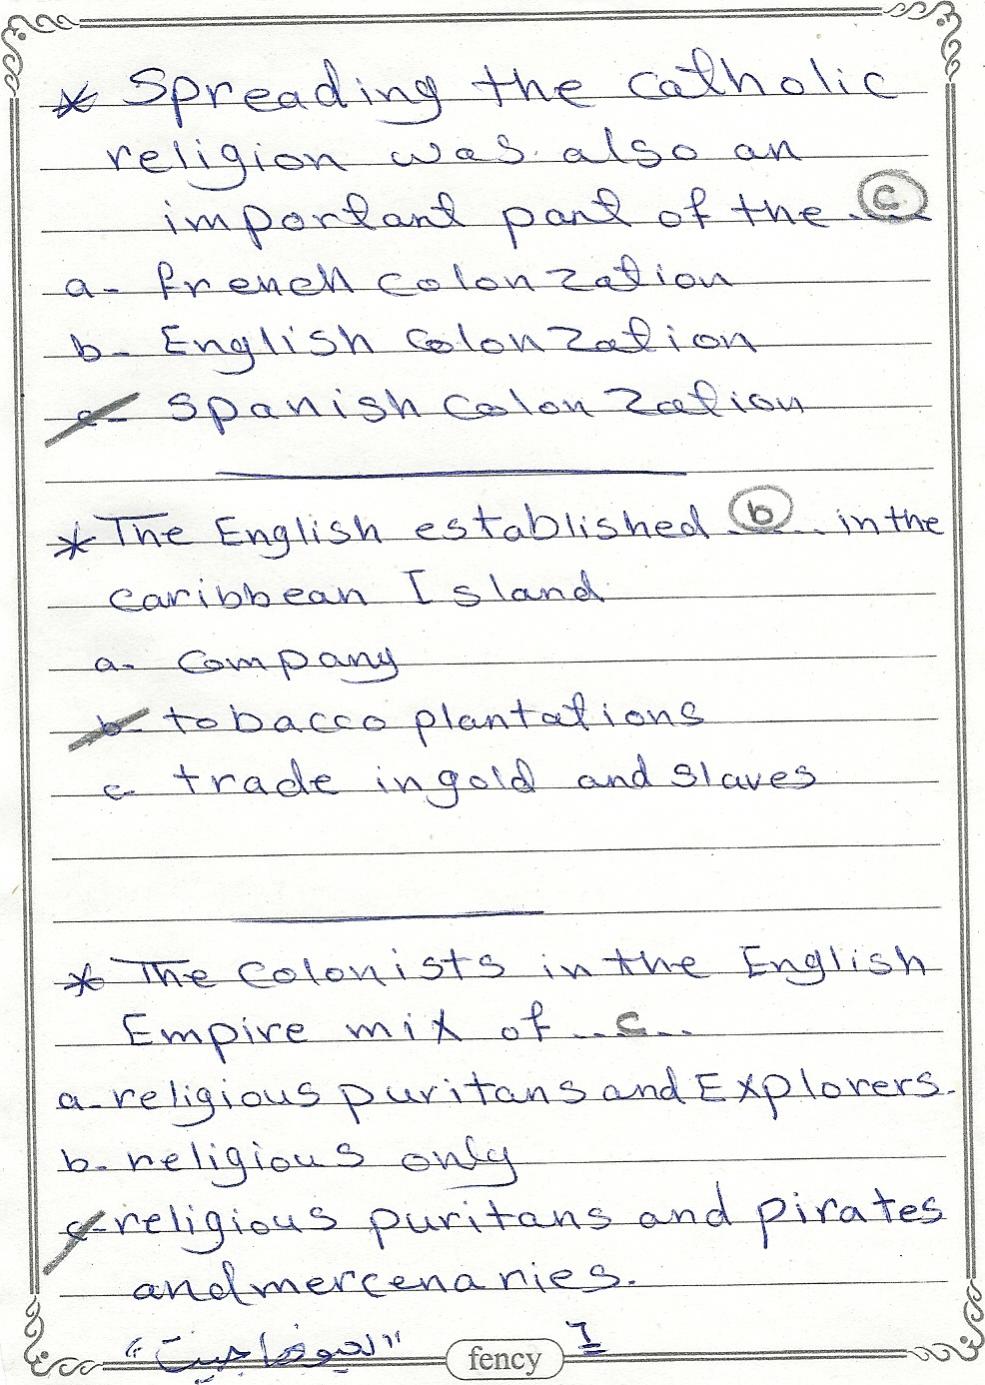 * Spreading the catholic
religion was also an
important part of the ..c..
a- french colonzation
b- English colonzation
c- Spanish colonzation
* The English established ..b.. in the
caribbean Island
a- company
b- tobacco plantations
c- trade in gold and slaves
* The colonists in the English
Empire mix of ..c..
a- religious puritans and Explorers.
b- religious only
c- religious puritans and pirates
and mercenaries.
fency